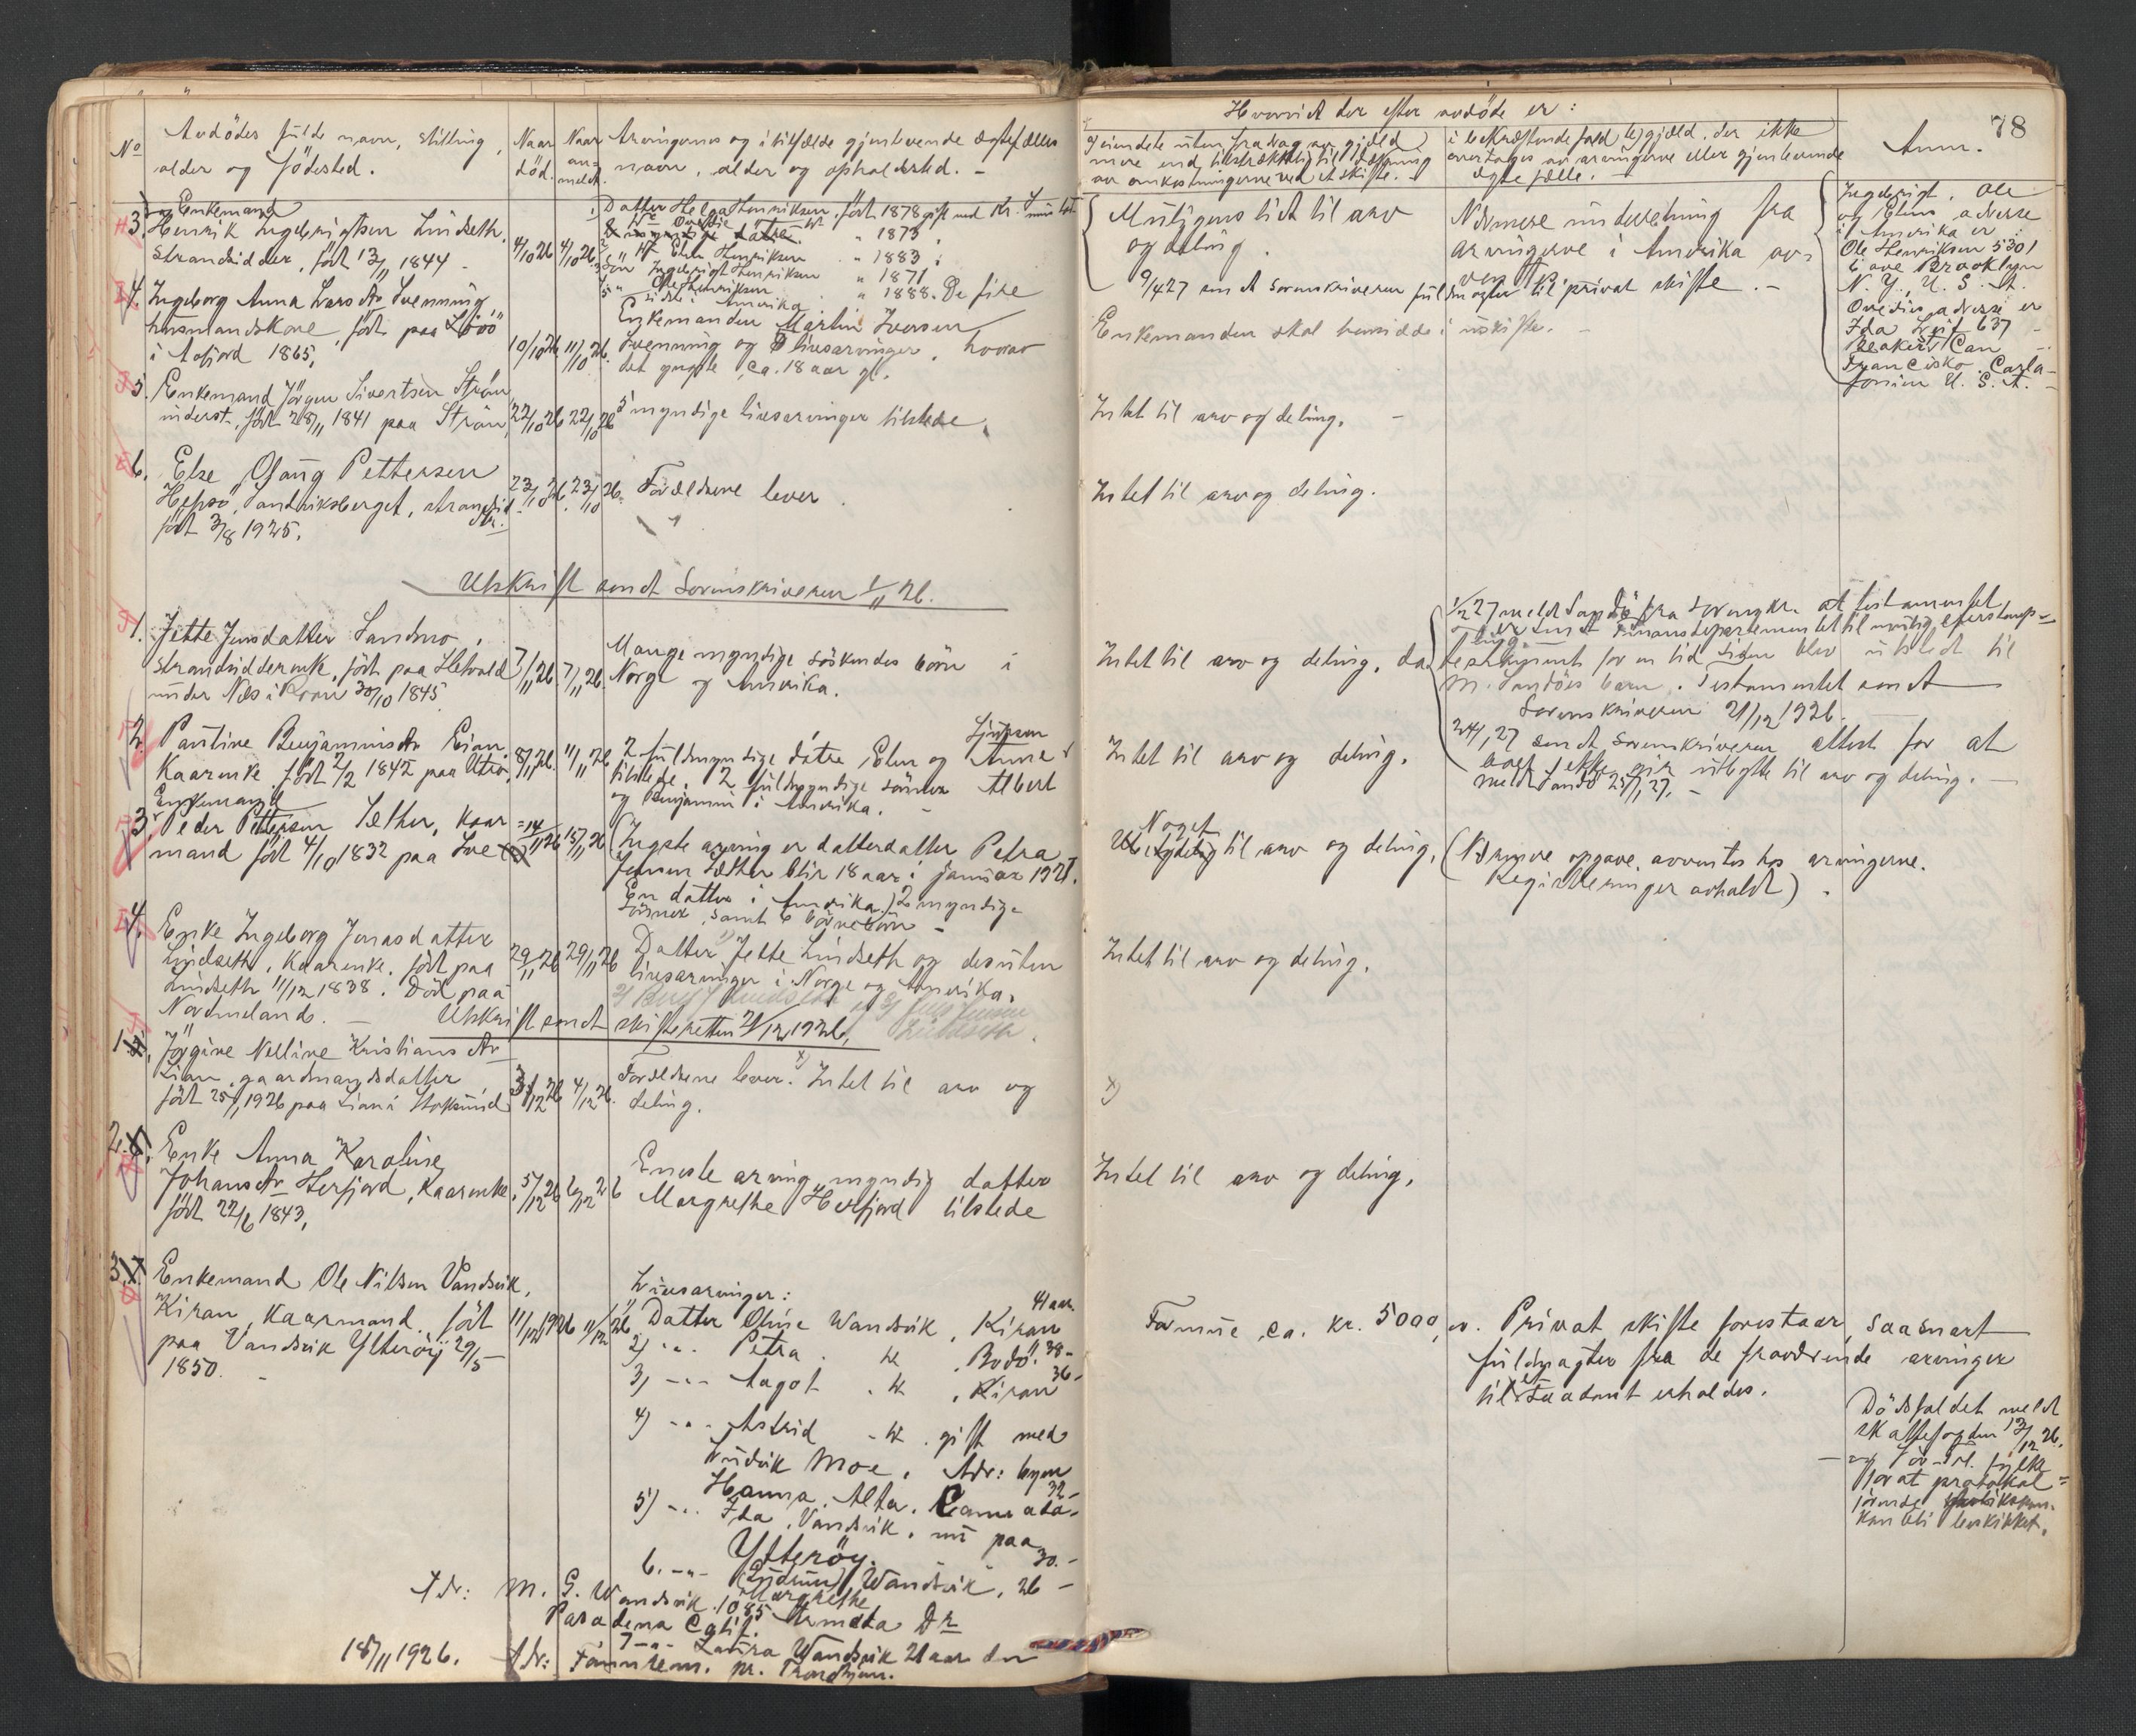 78
Hvorvidt der efter avdöde er:
No
Avdödes fulde navn, stilling,
alder og födested.
Naar
död.
Naar
an=
meldt.
Arvingernes og i tilfælde gjenlevende ægtefælles
navn, alder og opholdssted. -
Eiendele uten fradrag av gjæld
mere end tilstrækkelig til dækning
av omkostningerne ved et skifte. -
i bekræftende fald til gjæld, der ikke
overtages av arvingerne eller gjenlevende
ægtefælle. -
Anm.
3. Enkemand
Henrik Ingebrigtsen Lindseth
strandsidder, födt 13/11 1844 -
4/10 26 4/10 26
1, Datter Helga Henriksen, födt 1878 gift med Kr.
" 1873
Elen Henriksen " 1883
Sön Ingebrigt Henriksen " 1871
Ole Henriksen " 1888. De fire
sidste i Amerika
Muligens lidt til arv
og deling.
Nærmere underretning fra
arvingerne i Amerika av=
ventes
9/4 27 sendt sorenskriveren fuldmagter til privat skifte. -
Ingebrigt, Ole
og Elens adresse
i Amerika er:
Ole Henriksen 5301
6 ave Brooklyn
N. Y., U. S. A.
Ovedies adresse er
Ida 637 -
Can -
Francisko
U. S. A. -
4. Ingeborg Anna Larsdtr Svenning
husmandskone, födt paa
i Aafjord 1865,
10/10 26 11/10 26.
Enkemanden Martin Iversen
Svenning og livsarvinger, hvorav
det yngste ca. 18 aar gl.
Enkemanden skal hensidde i uskifte. -
5. Enkemand Jörgen Sivertsen Ström
inderst, födt 28/11 1841 paa Ström,
22/10 26 22/10 26
5 myndige livsarvinger tilstede.
Intet til arv og deling. -
6. Else Olaug Pettersen
Hepsö, strandsid.
födt 3/8 1925.
23/10 26. 23/10 26.
Forældrene lever.
Intet til arv og deling.
Utskrift sendt Sorenskriveren 1/11 26.
1. Jette Jensdatter Sandmo,
strandsidderenke, födt paa
under Næs i 30/10 1845
7/11 26. 7/11 26.
Mange myndige söskendes börn i
Norge og Amerika.
Intet til arv og deling, da
1/2 27 meldt fra Sorenskr. at testamentet
er sendt Finansdepartementet til mulig
for en tid siden blev utstedt til
M. Sandöes barn. Testamentet sendt
Sorenskriveren 21/12 1926.
2. Pauline Benjaminsdtr Eian
Kaarenke födt 2/2 1842 paa
8/11 26. 11/11 26
2 fuldmyndige dötre, Elen og Anna
tilstede, 2 fuldmyndige sönner Albert
og Benjamin i Amerika. -
Intet til arv og deling.
24/1 27 sendt Sorenskriveren attest for at
boet ikke gir utbytte til arv og deling. -
meldt 25/1 27. -
3. Enkemand
Peder Pettersen Sether, kaar=
mand födt 4/10 1832 paa
14/11 26 15/11 26
(Yngste arving er datterdatter Petra
Jensen Sæther blir 18 aar i januar 1927.
En datter i Amerika) 2 myndige
sönner, samt 6 börnebörn -
Noget
til arv og deling,
(Nærmere opgave avventes hos arvingerne.
Registreringer avholdt).
4. Enke Ingeborg Jonasdatter
Lindseth, kaarenke. födt paa
Lindseth 11/12 1838. Död paa
Nordmeland. -
29/11 26 29/11 26
Datter 1) Jette Lindseth og desuten
livsarvinger i Norge og Amerika.
Intet til arv og deling.
Utskrift sendt skifteretten 2/12 1926.
1. Jörgine Nelline Kristiansdtr
Lian, gaardmandsdatter
födt 25/1 1926 paa Lian i Stoksund
3/12 26 4/12 26.
Forældrene lever. x) Intet til arv og
deling.
x)
2. Enke Anna Karoline
Johansdtr Herfjord, kaarenke,
födt 22/6 1843,
5/12 26 6/12 26
Eneste arving myndig datter
Margrethe Herfjord tilstede
Intet til arv og deling.
3. Enkemand Ole Nilsen Vandsvik,
Kiran, kaarmand, födt
paa Vandsvik Ytteröy 29/5 -
1850. -
11/12 1926 11/12 26
Livsarvinger:
1, Datter Oline Wandsvik, Kiran 41 aar.
2) -"- Petra " W. Bodö. 38 -
3, -"- Aagot " W. Kiran 36 -
4) -"- Astrid - W. gift med
Moe, Adr:
Hanna, Alta. Cannada. 32 -
5) -"- Ida Vandsvik, nu paa
Ytteröy. 30. -
6. -"- Wandsvik, 26 -
Margrethe
Adr: M. G. Wandsvik 1085
Pasadena Calif. Dr
7 -"- Laura Wandsvik 21 aar
18/11 1926. Adr: pr. Trondhjem.
Formue ca. kr. 5000,00.
Privat skifte forestaar, saasnart
fuldmagter fra de fraværende arvinger
til saadant erholdes.
Dödsfaldet meldt
skattefogden 13/12 26.
fylke
for at protokol=
kan bli beskikket.